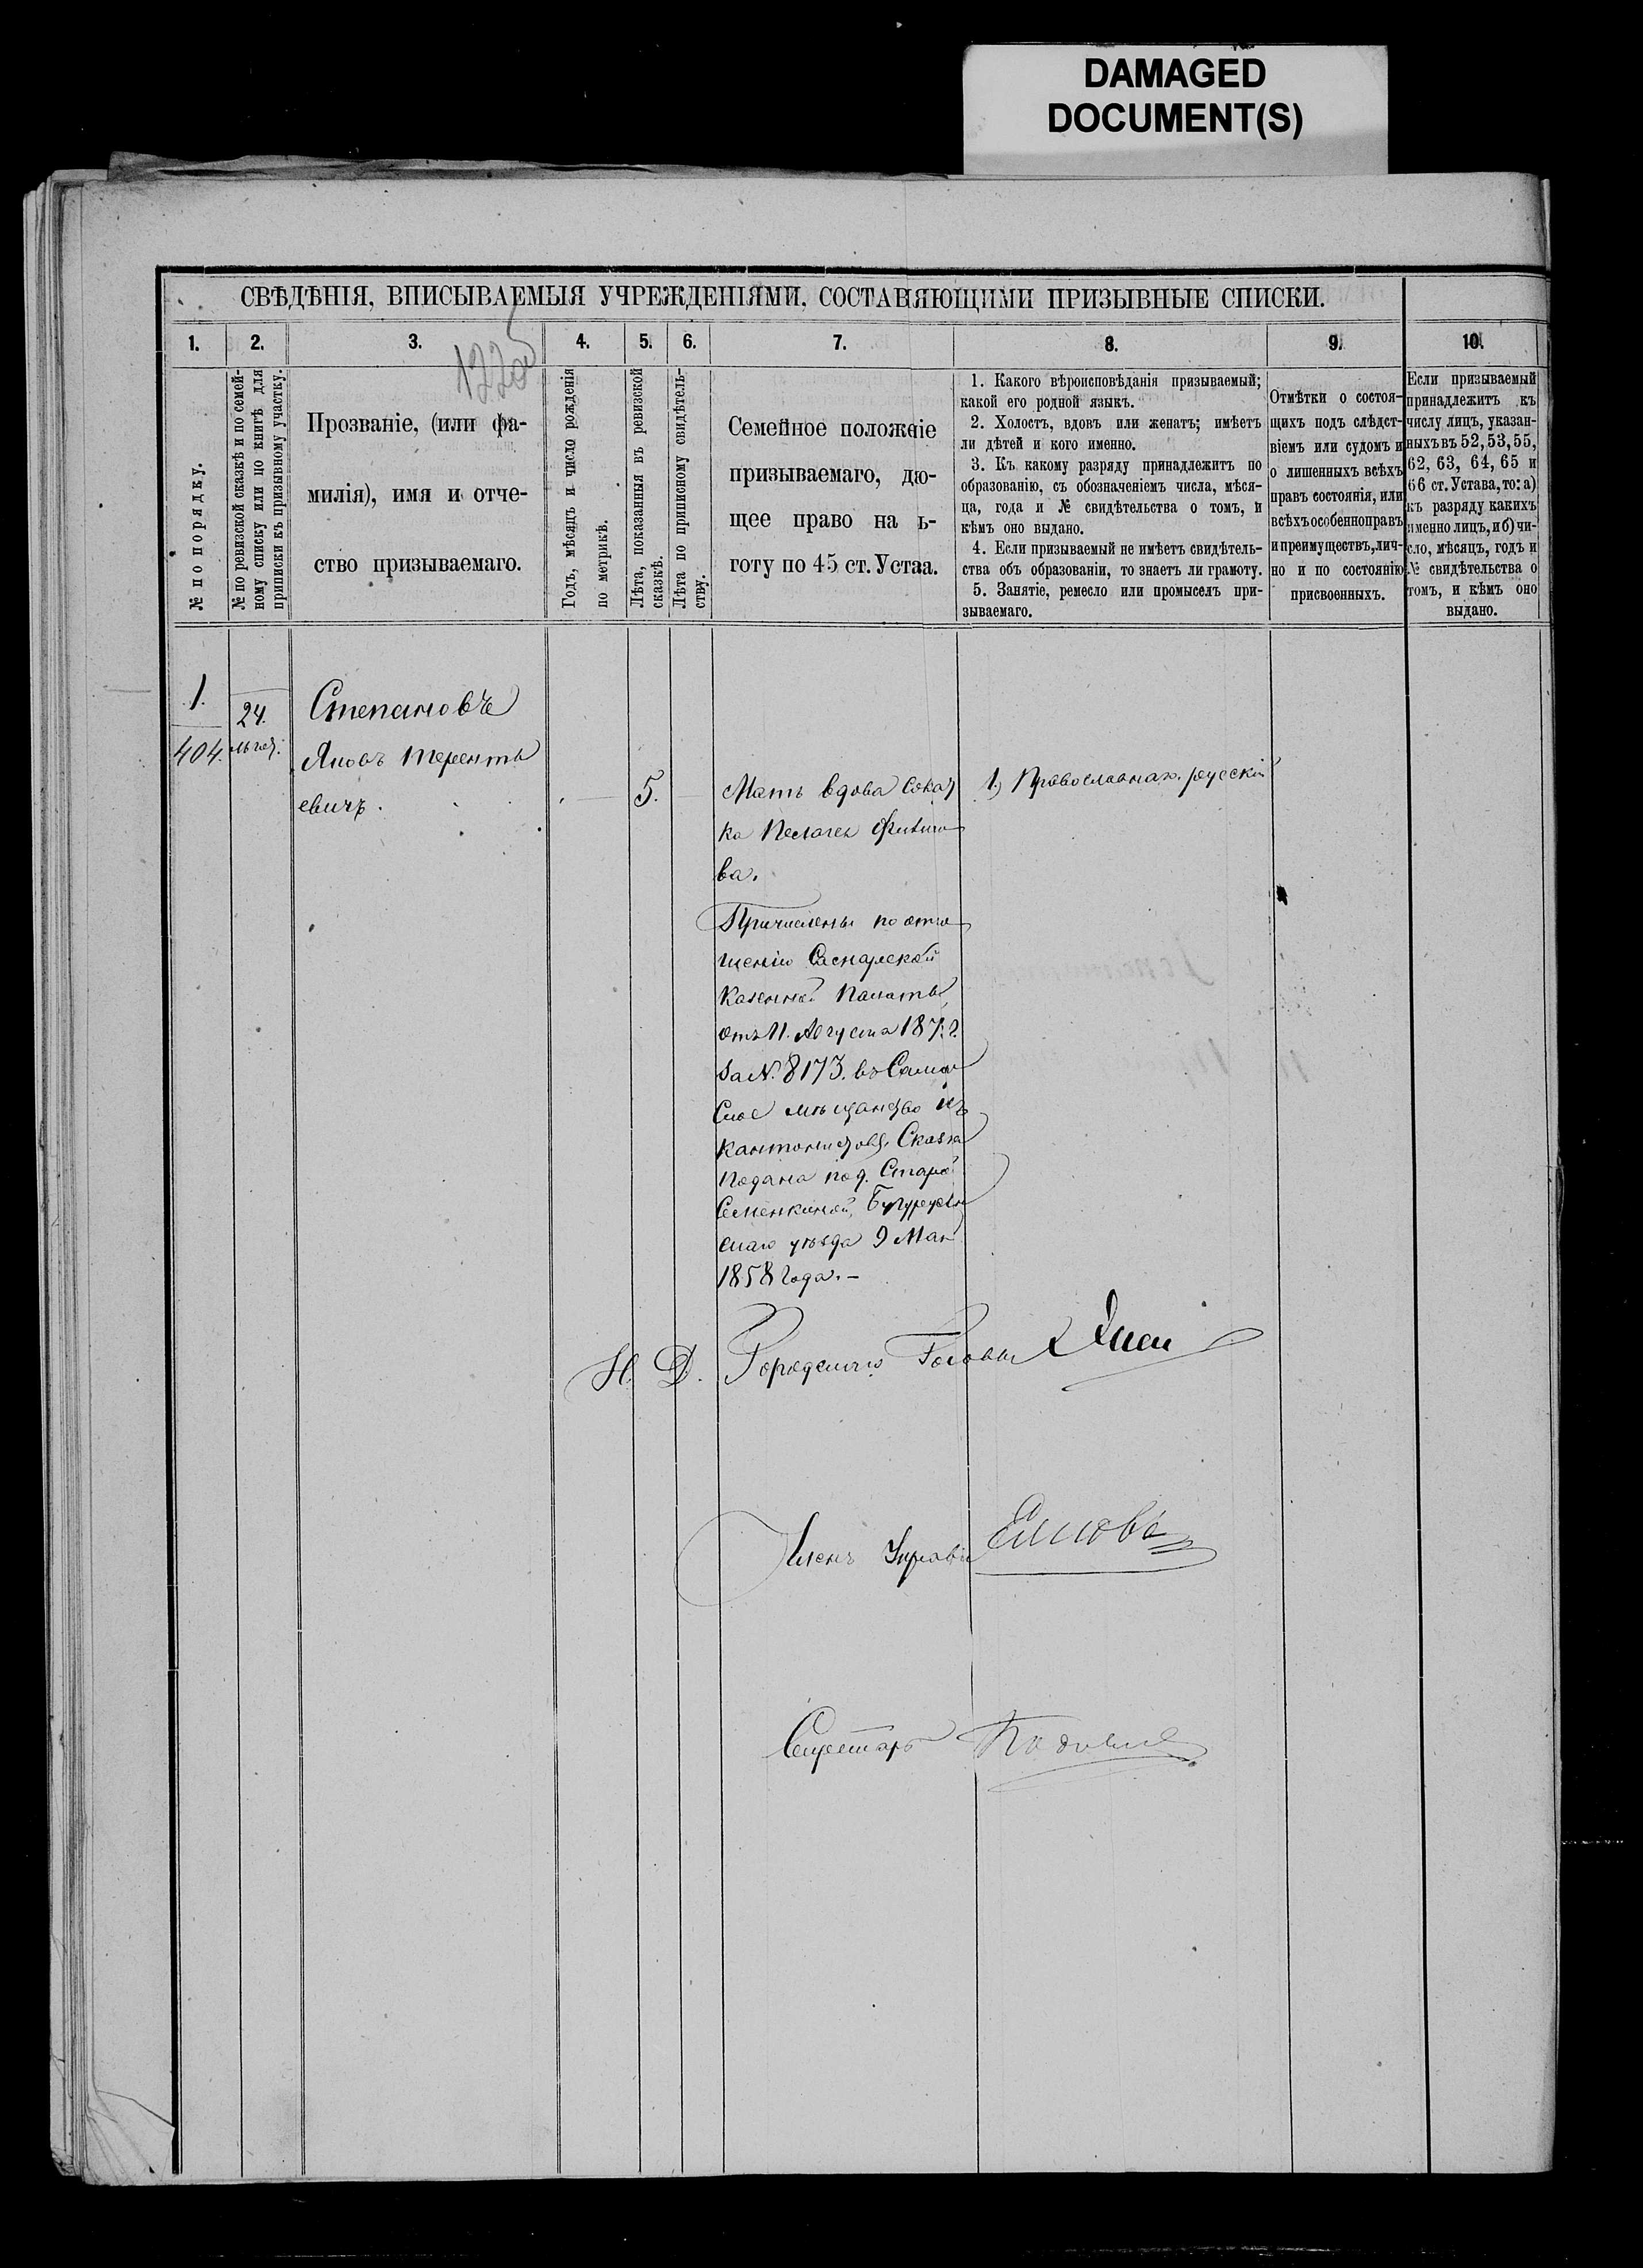 DAMAGED
DOCUMENT(S)
СВѢДѢНІЯ, ВПИСЫВАЕМЫЯ УЧРЕЖДЕНІЯМИ, СОСТАВЛЯЮЩИМИ ПРИЗЫВНЫЕ СПИСКИ.
1. 2. 3. 4. 5. 6. 7. 8. 9. 10.
№ по порядку.
№ по ревизской сказкѣ и по семей-
ному списку или по книгѣ для
приписки къ призывному участку.
Прозваніе, (или фа-
милія), имя и отче-
ство призываемаго.
Годъ, мѣсяцъ и число рожденія
по метрикѣ.
Лѣта, показанныя въ ревизской
сказкѣ.
Лѣта по приписному свидѣтель-
ству.
Семейное положеіе
призываемаго, дю-
щее право на ь-
готу по 45 ст. Устаа.
1. Какого вѣроисповѣданія призываемый;
какой его родной языкъ.
2. Холостъ, вдовъ или женатъ; имѣетъ
ли дѣтей и кого именно.
3. Къ какому разряду принадлежитъ по
образованію, съ обозначеніемъ числа, мѣся-
ца, года и № свидѣтельства о томъ, и
кѣмъ оно выдано.
4. Если призываемый не имѣетъ свидѣтель-
ства объ образованіи, то знаетъ ли грамоту.
5. Занятіе, ремесло или промыселъ при-
зываемаго.
Отмѣтки о состоя-
щихъ подъ слѣдст-
віемъ или судомъ и
о лишенныхъ всѣхъ
правъ состоянія, или
всѣхъ особенно правъ
и преимуществъ, лич-
но и по состоянію
присвоенныхъ.
Если призываемый
принадлежитъ къ
числу лицъ, указан-
ныхъ въ 52, 53, 55,
62, 63, 64, 65 и
66 ст. Устава, то: а)
къ разряду какихъ
именно лицъ, и б) чи-
сло, мѣсяцъ, годъ и
№ свидѣтельства о
томъ, и кѣмъ оно
выдано.
1.
404.
24.
Степановъ
Яковъ Теренть
евичъ.
5.
Мать вдова
ка Пелагея
ва.
Причислены по отно
шенію
Казенной Палаты
отъ 11. Августа 187
за N. 8173. въ
ское мѣщанство изъ
кантонистовъ. Сказка
подана по д. Старо
Семенкиной, Бугуруслан
скаго уѣзда 9 Мая
1858 года.–
1) Православнаго. русскій
И. Д. Городскаго Головы
Членъ Управы
Секретарь